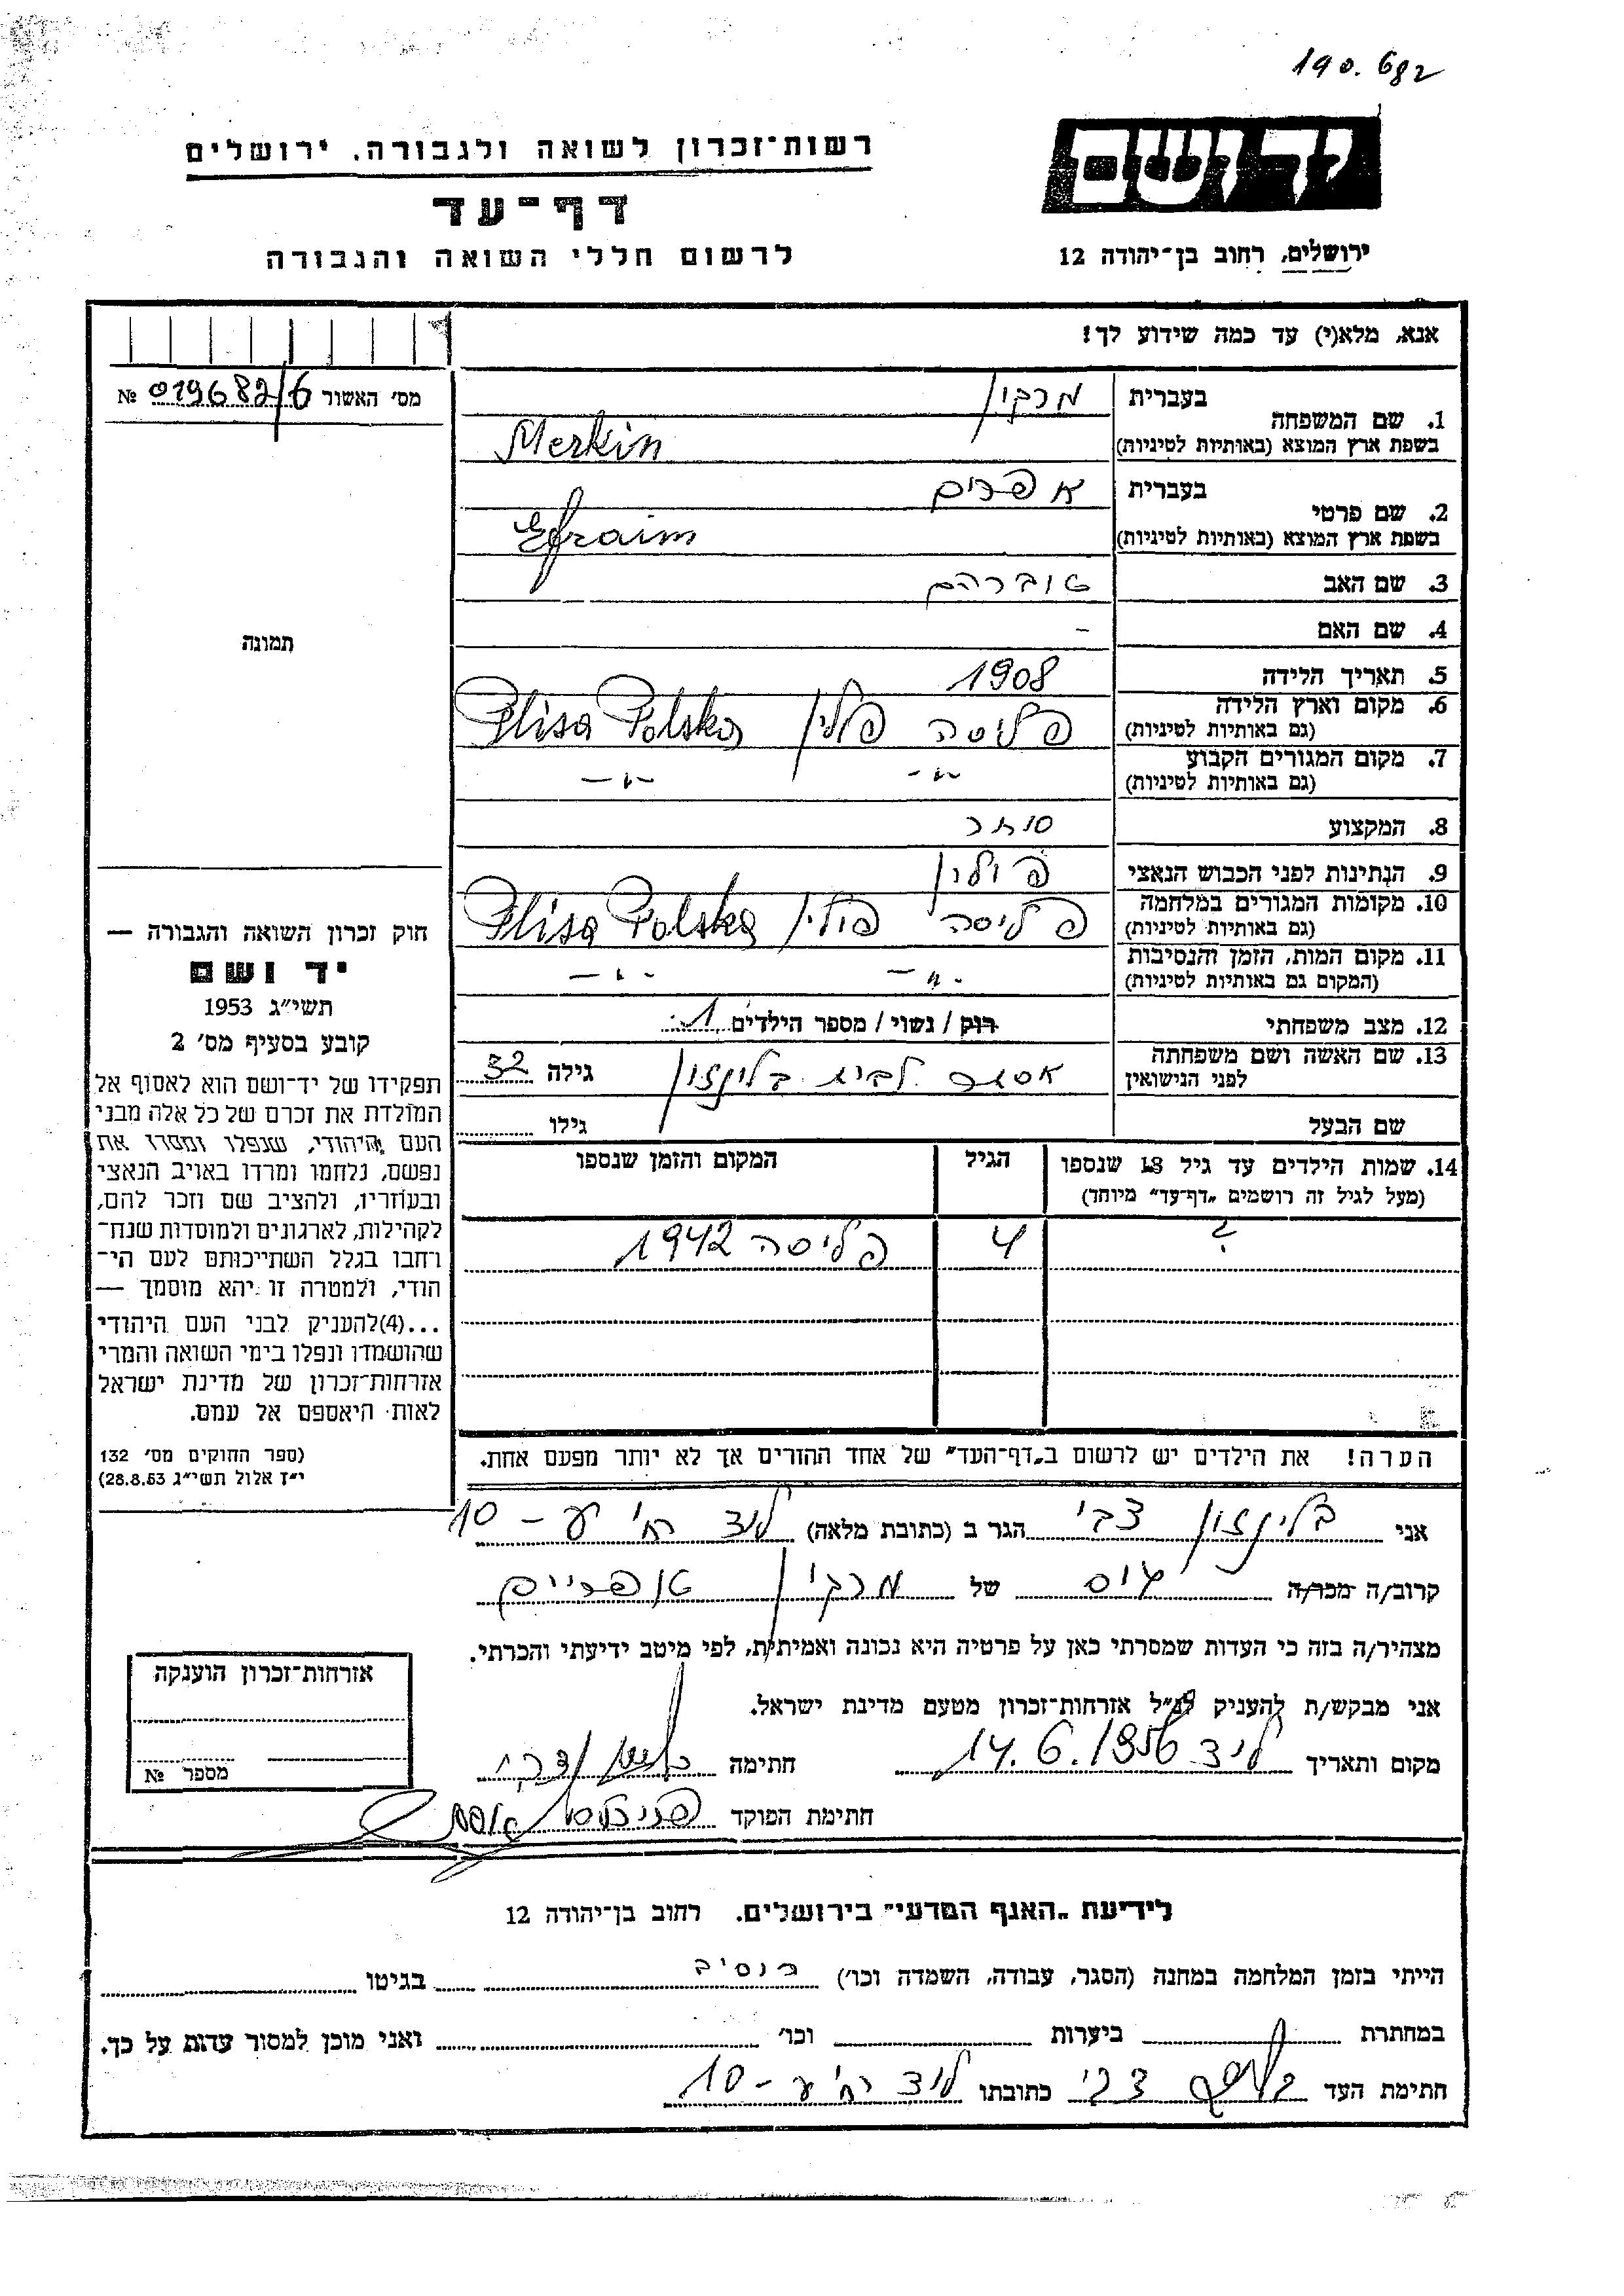 190.682
יד ושם
רשות־זכרון לשואה ולגבורה, ירושלים
דף־עד
לרשום חללי השואה והגבורה
ירושלים, רחוב בן־יהודה 12
אנא, מלא(י) עד כמה שידוע לך!
מס' האשור № 019682/6
תמונה
1. שם המשפחה
בעברית מרקין
בשפת ארץ המוצא (באותיות לטיניות) Merkin
2. שם פרטי
בעברית אפרים
בשפת ארץ המוצא (באותיות לטיניות) Efraim
3. שם האב אברהם
4. שם האם –
5. תאריך הלידה 1908
6. מקום וארץ הלידה פליסה פולין Plisa Polska
(גם באותיות לטיניות)
7. מקום המגורים הקבוע -"- -"-
(גם באותיות לטיניות)
8. המקצוע סוחר
9. הנתינות לפני הכבוש הנאצי פולין
10. מקומות המגורים במלחמה פליסה פולין Plisa Polska
(גם באותיות לטיניות)
11. מקום המות, הזמן והנסיבות -"- -"-
(המקום גם באותיות לטיניות)
12. מצב משפחתי רוק / נשוי / מספר הילדים 1
13. שם האשה ושם משפחתה אסתר לבית בלינזון גילה 32
לפני הנישואין
שם הבעל גילו
14. שמות הילדים עד גיל 18 שנספו הגיל המקום והזמן שנספו
(מעל לגיל זה רושמים „דף־עד" מיוחד)
? 4 פליסה 1942
הערה! את הילדים יש לרשום ב„דף־העד" של אחד ההורים אך לא יותר מפעם אחת.
חוק זכרון השואה והגבורה —
יד ושם
תשי"ג 1953
קובע בסעיף מס' 2
תפקידו של יד־ושם הוא לאסוף אל
המולדת את זכרם של כל אלה מבני
העם היהודי, שנפלו ומסרו את
נפשם, נלחמו ומרדו באויב הנאצי
ובעוזריו, ולהציב שם וזכר להם,
לקהילות, לארגונים ולמוסדות שנח־
רחבו בגלל השתייכותם לעם הי־
הודי, ולמטרה זו יהא מוסמך —
...(4)להעניק לבני העם היהודי
שהושמדו ונפלו בימי השואה והמרי
אזרחות־זכרון של מדינת ישראל
לאות היאספם אל עמם.
(ספר החוקים מס' 132
י"ז אלול תשי"ג 28.8.53)
אני בלינזון צבי הגר ב (כתובת מלאה) לוד רח' יע – 10
קרוב/ה מכר/ה גיס של מרקין אפריים
מצהיר/ה בזה כי העדות שמסרתי כאן על פרטיה היא נכונה ואמיתית, לפי מיטב ידיעתי והכרתי.
אני מבקש/ת להעניק לנ"ל אזרחות־זכרון מטעם מדינת ישראל.
מקום ותאריך לוד 14.6.1956 חתימה
חתימת הפוקד
אזרחות־זכרון הוענקה
מספר №
לידיעת „האגף המדעי" בירושלים, רחוב בן־יהודה 12
הייתי בזמן המלחמה במחנה (הסגר, עבודה, השמדה וכו') בגיטו
במחתרת ביערות וכו' ואני מוכן למסור עדות על כך.
חתימת העד צבי כתובתו לוד רח' יע – 10